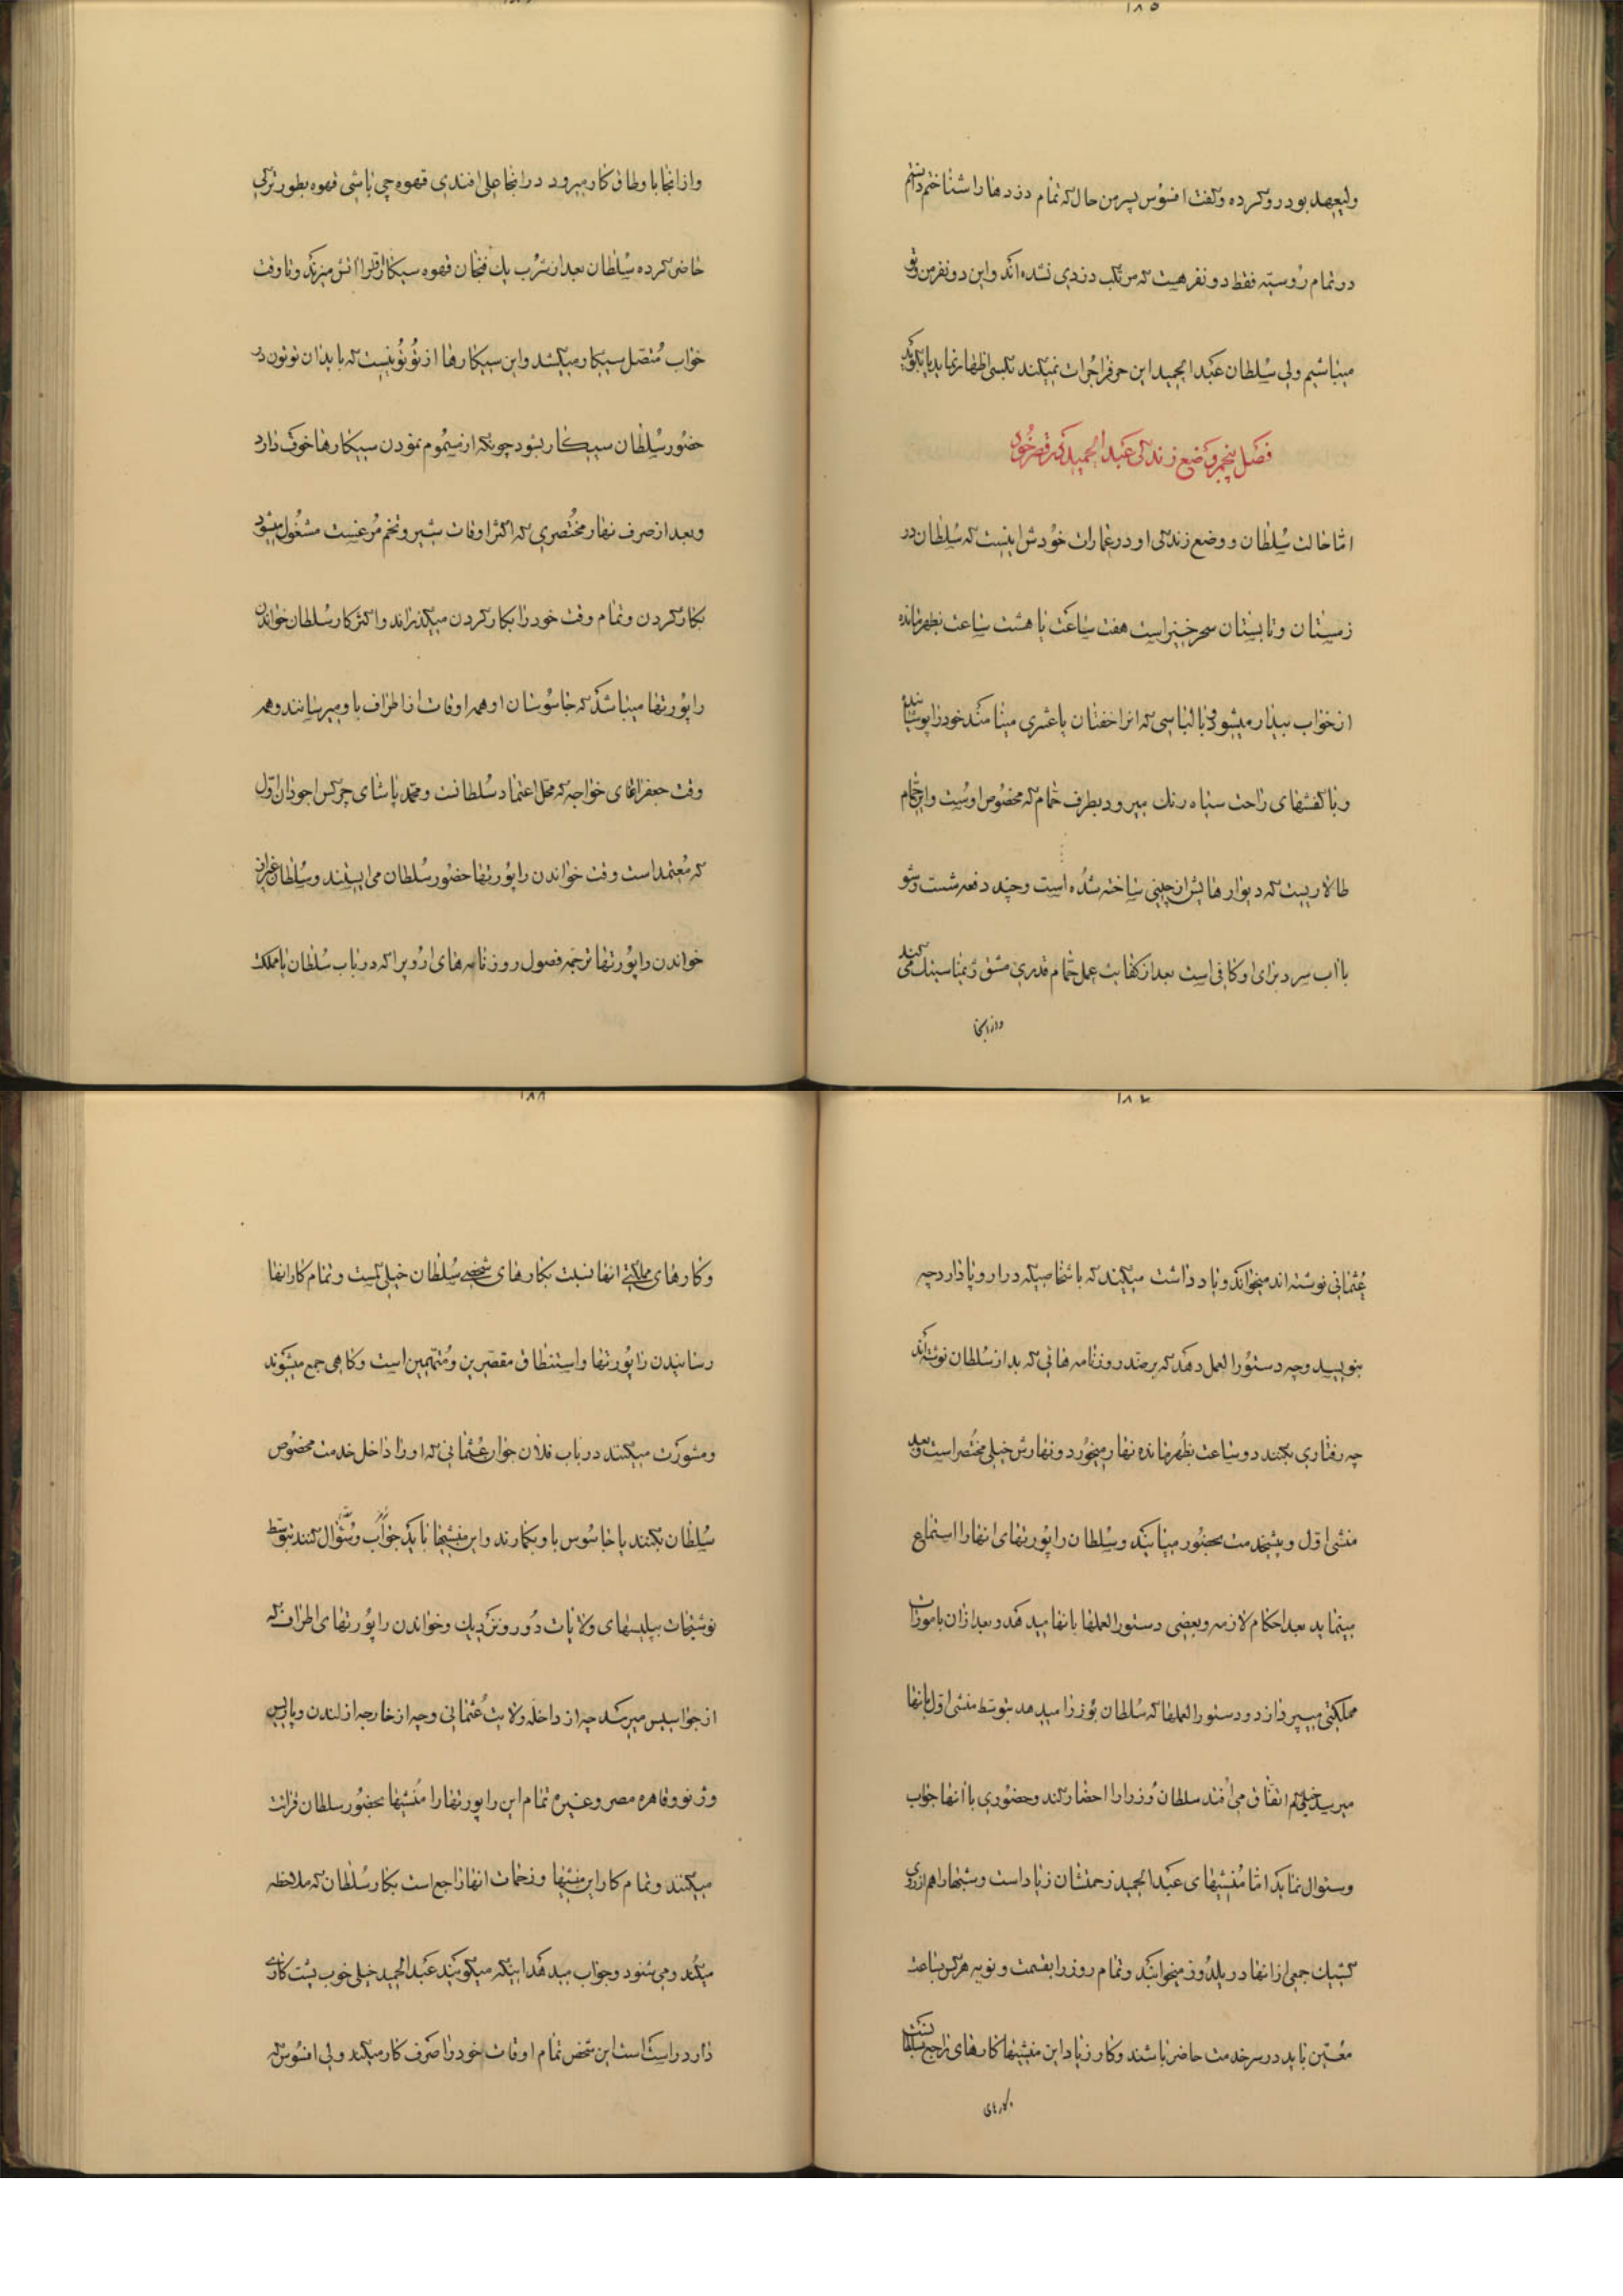 ۱۸۵
ولیعهد بود رو کرده و گفت افسوس پسر من حال که تمام دزدها را شناختم دانستم
در تمام روسیه فقط دو نفر هست که مرتکب دزدی نشده اند و این دو نفر من و تو
میباشیم ولی سلطان عبدالحمید این حرف را جرات نمیکند بکسی اظهار نماید یا بگوید
فصل پنجم وضع زندگی عبدالحمید در قصر خود
اما حالت سلطان و وضع زندگی او در عمارات خودش اینست که سلطان در
زمستان و تابستان سحرخیز است هفت ساعت یا هشت ساعت بظهر مانده
از خواب بیدار میشود با لباسی که انرا خفتان یا عنتری مینامند خود را پوشانیده
و با کفشهای راحت سیاه رنک میرود بطرف حمام که مخصوص اوست و این حمام
طالاریست که دیوارهایش از چینی ساخته شده است و چند دفعه شست و شو
با اب سرد برای او کافی است بعد از کفایت عمل حمام قدری مشق ژیمناسیتک می کند
و از انجا
و از انجا باوطاق کار میرود در انجا علی افندی قهوه چی باشی قهوه بطور ترکی
حاضر کرده سلطان بعد از شرب یک فنجان قهوه سیکار اول را اتش میزند و تا وقت
خواب متصل سیکار میکشد و این سیکارها از توتونیست که باید ان توتون در
حضور سلطان سیکار بشود چونکه از مسموم نمودن سیکارها خوف دارد
و بعد از صرف نهار مختصری که اکثر اوقات شیر و تخم مرغست مشغول میشود
بکار کردن و تمام وقت خود را بکار کردن میگذراند و اکثر کار سلطان خواندن
راپورتها میباشد که جاسوسان او همه اوقات از اطراف باو میرسانند و همه
وقت جعفر اغای خواجه که محل اعتماد سلطانست و محمد پاشای چرکس اجودان اول
که معتمد است وقت خواندن راپورتها حضور سلطان می ایستند و سلطان غیر از
خواندن راپورتها ترجمه فصول روزنامه های اروپ را که در باب سلطان یا مملکت
۱۸۷
عثمانی نوشته اند میخواند و یادداشت میکند که باشخاصیکه در اروپا دارد چه
بنویسد و چه دستورالعمل دهد که بر ضد روزنامه هائی که بد از سلطان نوشته اند
چه رفتاری بکنند دو ساعت بظهر مانده نهار میخورد و نهارش خیلی مختصر است و بعد
منشی اول و پیشخدمت بحضور میایند و سلطان راپورتهای انها را استماع
مینماید بعد احکام لازمه و بعضی دستورالعملها بانها میدهد و بعد از ان بامورات
مملکتی میپردازد و دستورالعملها که سلطان بوزرا میدهد بتوسط منشی اول بانها
میرسد خیلی کم اتفاق می افتد سلطان وزرا را احضار کند و حضوری با انها جواب
و سئوال نماید اما منشیهای عبدالحمید زحمتشان زیاد است و شبها را هم از روی
کشیک جمعی از انها در یلدوز میخوابند و تمام روز را بقسمت و نوبه هر کس بساعت
معین باید در سر خدمت حاضر باشند و کار زیاد این منشیها کارهای راجع بسلطانست
و کارهای
۱۸۸
و کارهای مملکتی انها نسبت بکارهای شخصی سلطان خیلی کمست و تمام کار انها
رسانیدن راپورتها و استنطاق مقصرین و متهمین است و گاهی جمع میشوند
و مشورت میکنند در باب فلان جوان عثمانی که او را داخل خدمت مخصوص
سلطان بکنند یا جاسوس باو بگمارند و این منشیها باید جواب و سئوال کنند بتوسط
نوشتجات بپلیسهای ولایات دور و نزدیک و خواندن راپورتهای اطراف که
از جواسیس میرسد چه از داخله ولایت عثمانی و چه از خارجه از لندن و پاریس
و ژنو و قاهره مصر و غیره تمام این راپورتها را منشیها بحضور سلطان قرائت
میکنند و تمام کار این منشیها و زحمات انها راجع است بکار سلطان که ملاحظه
میکند و می شنود و جواب میدهد اینکه میگویند عبدالحمید خیلی خوب پشت کاری
دارد راست است این شخص تمام اوقات خود را صرف کار میکند ولی افسوس که